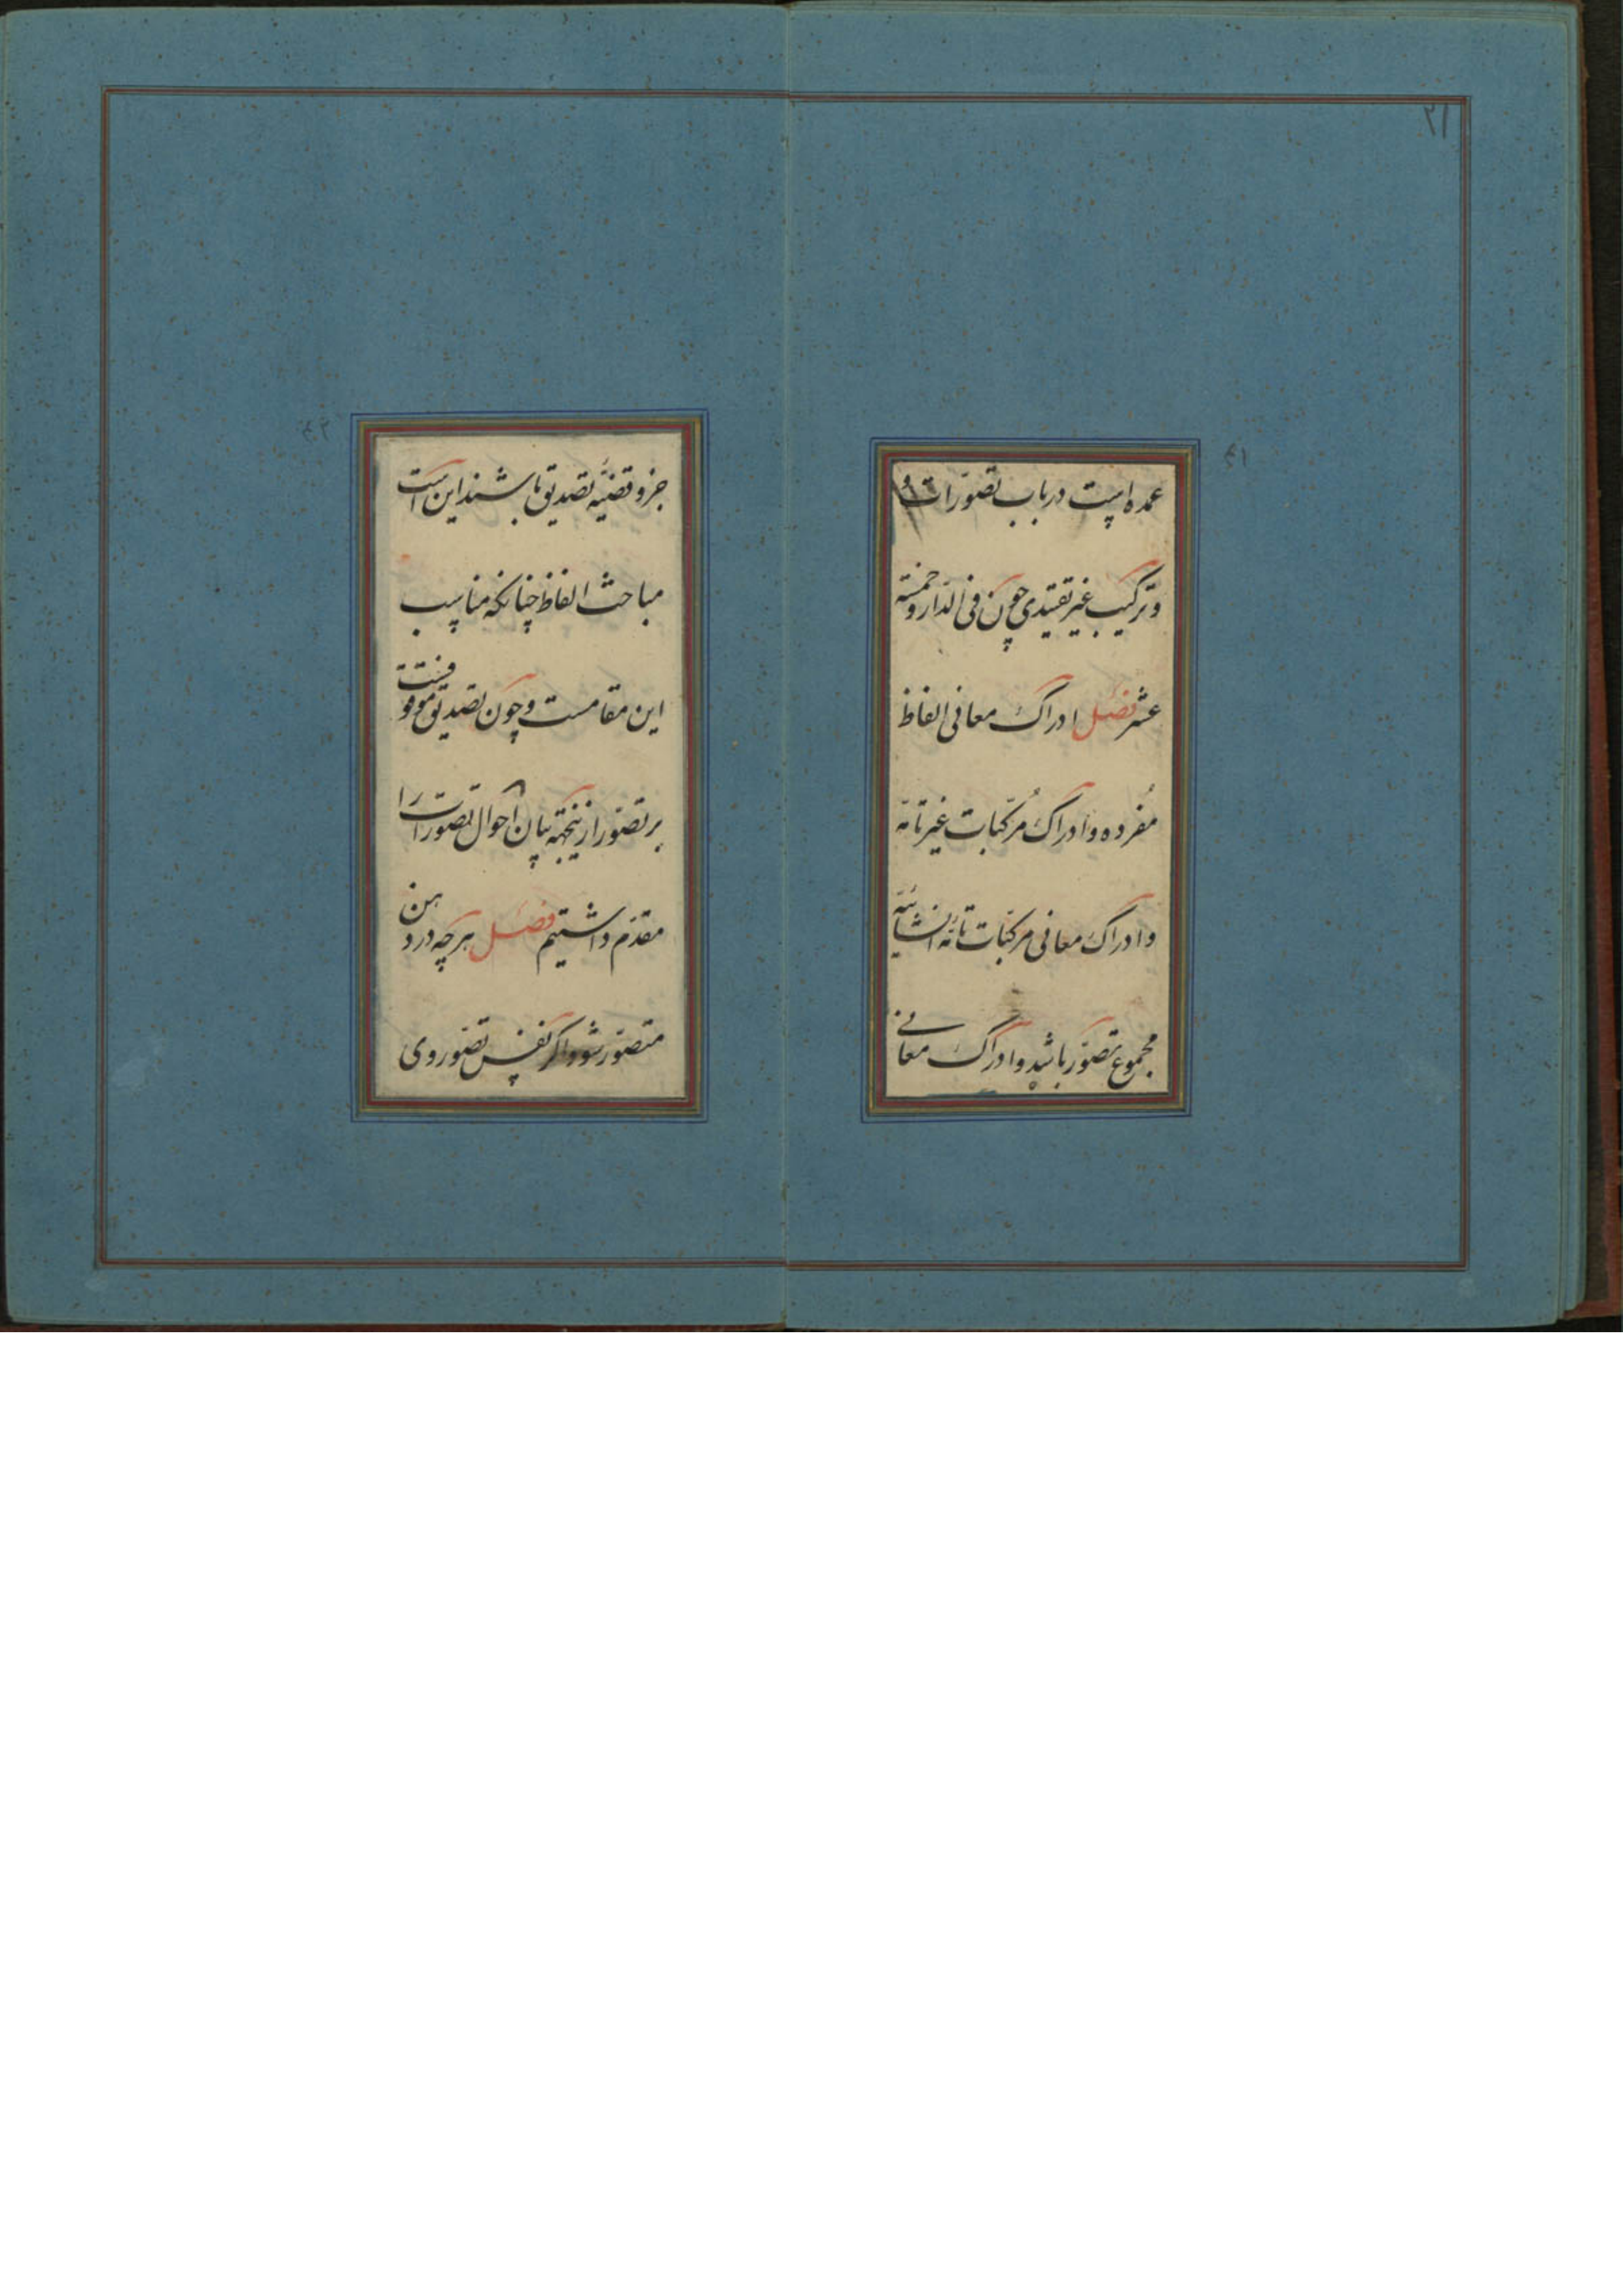 ۲۱
۴۱
عمده است در باب تصوّرات و
و ترکیب غیر تقییدی چون فی الدّار و خمسَة
عشر فصل ادراک معانی الفاظ
مُفرده و ادراک مُرکّبات غیر تامّه
و ادراک معانی مرکّبات تامّه انشائیّه
مجموع تصوّر باشد و ادراک معانی
۴۲
جزو قضیّه تصدیق باشند این است
مباحث الفاظ چنانکه مناسب
این مقامست و چون تصدیق موقوفست
بر تصوّر ازینجهته بیان احوال تصوّرات را
مقدّم داشتیم فصل هرچه در ذهن
متصوّر شود اگر نفس تصوّر وی